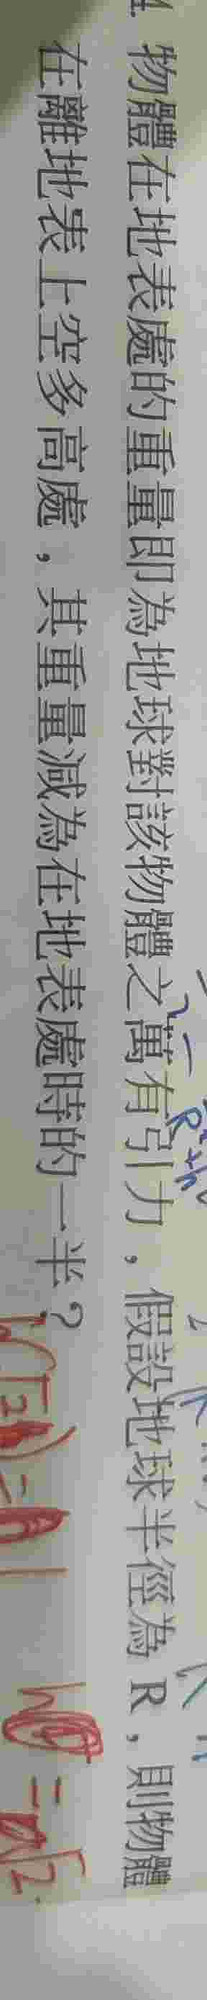 物體在地表處的重量即為地球對該物體之萬有引力，假設地球半徑為 R，則物體
在離地表上空多高處，其重量減為在地表處時的一半？